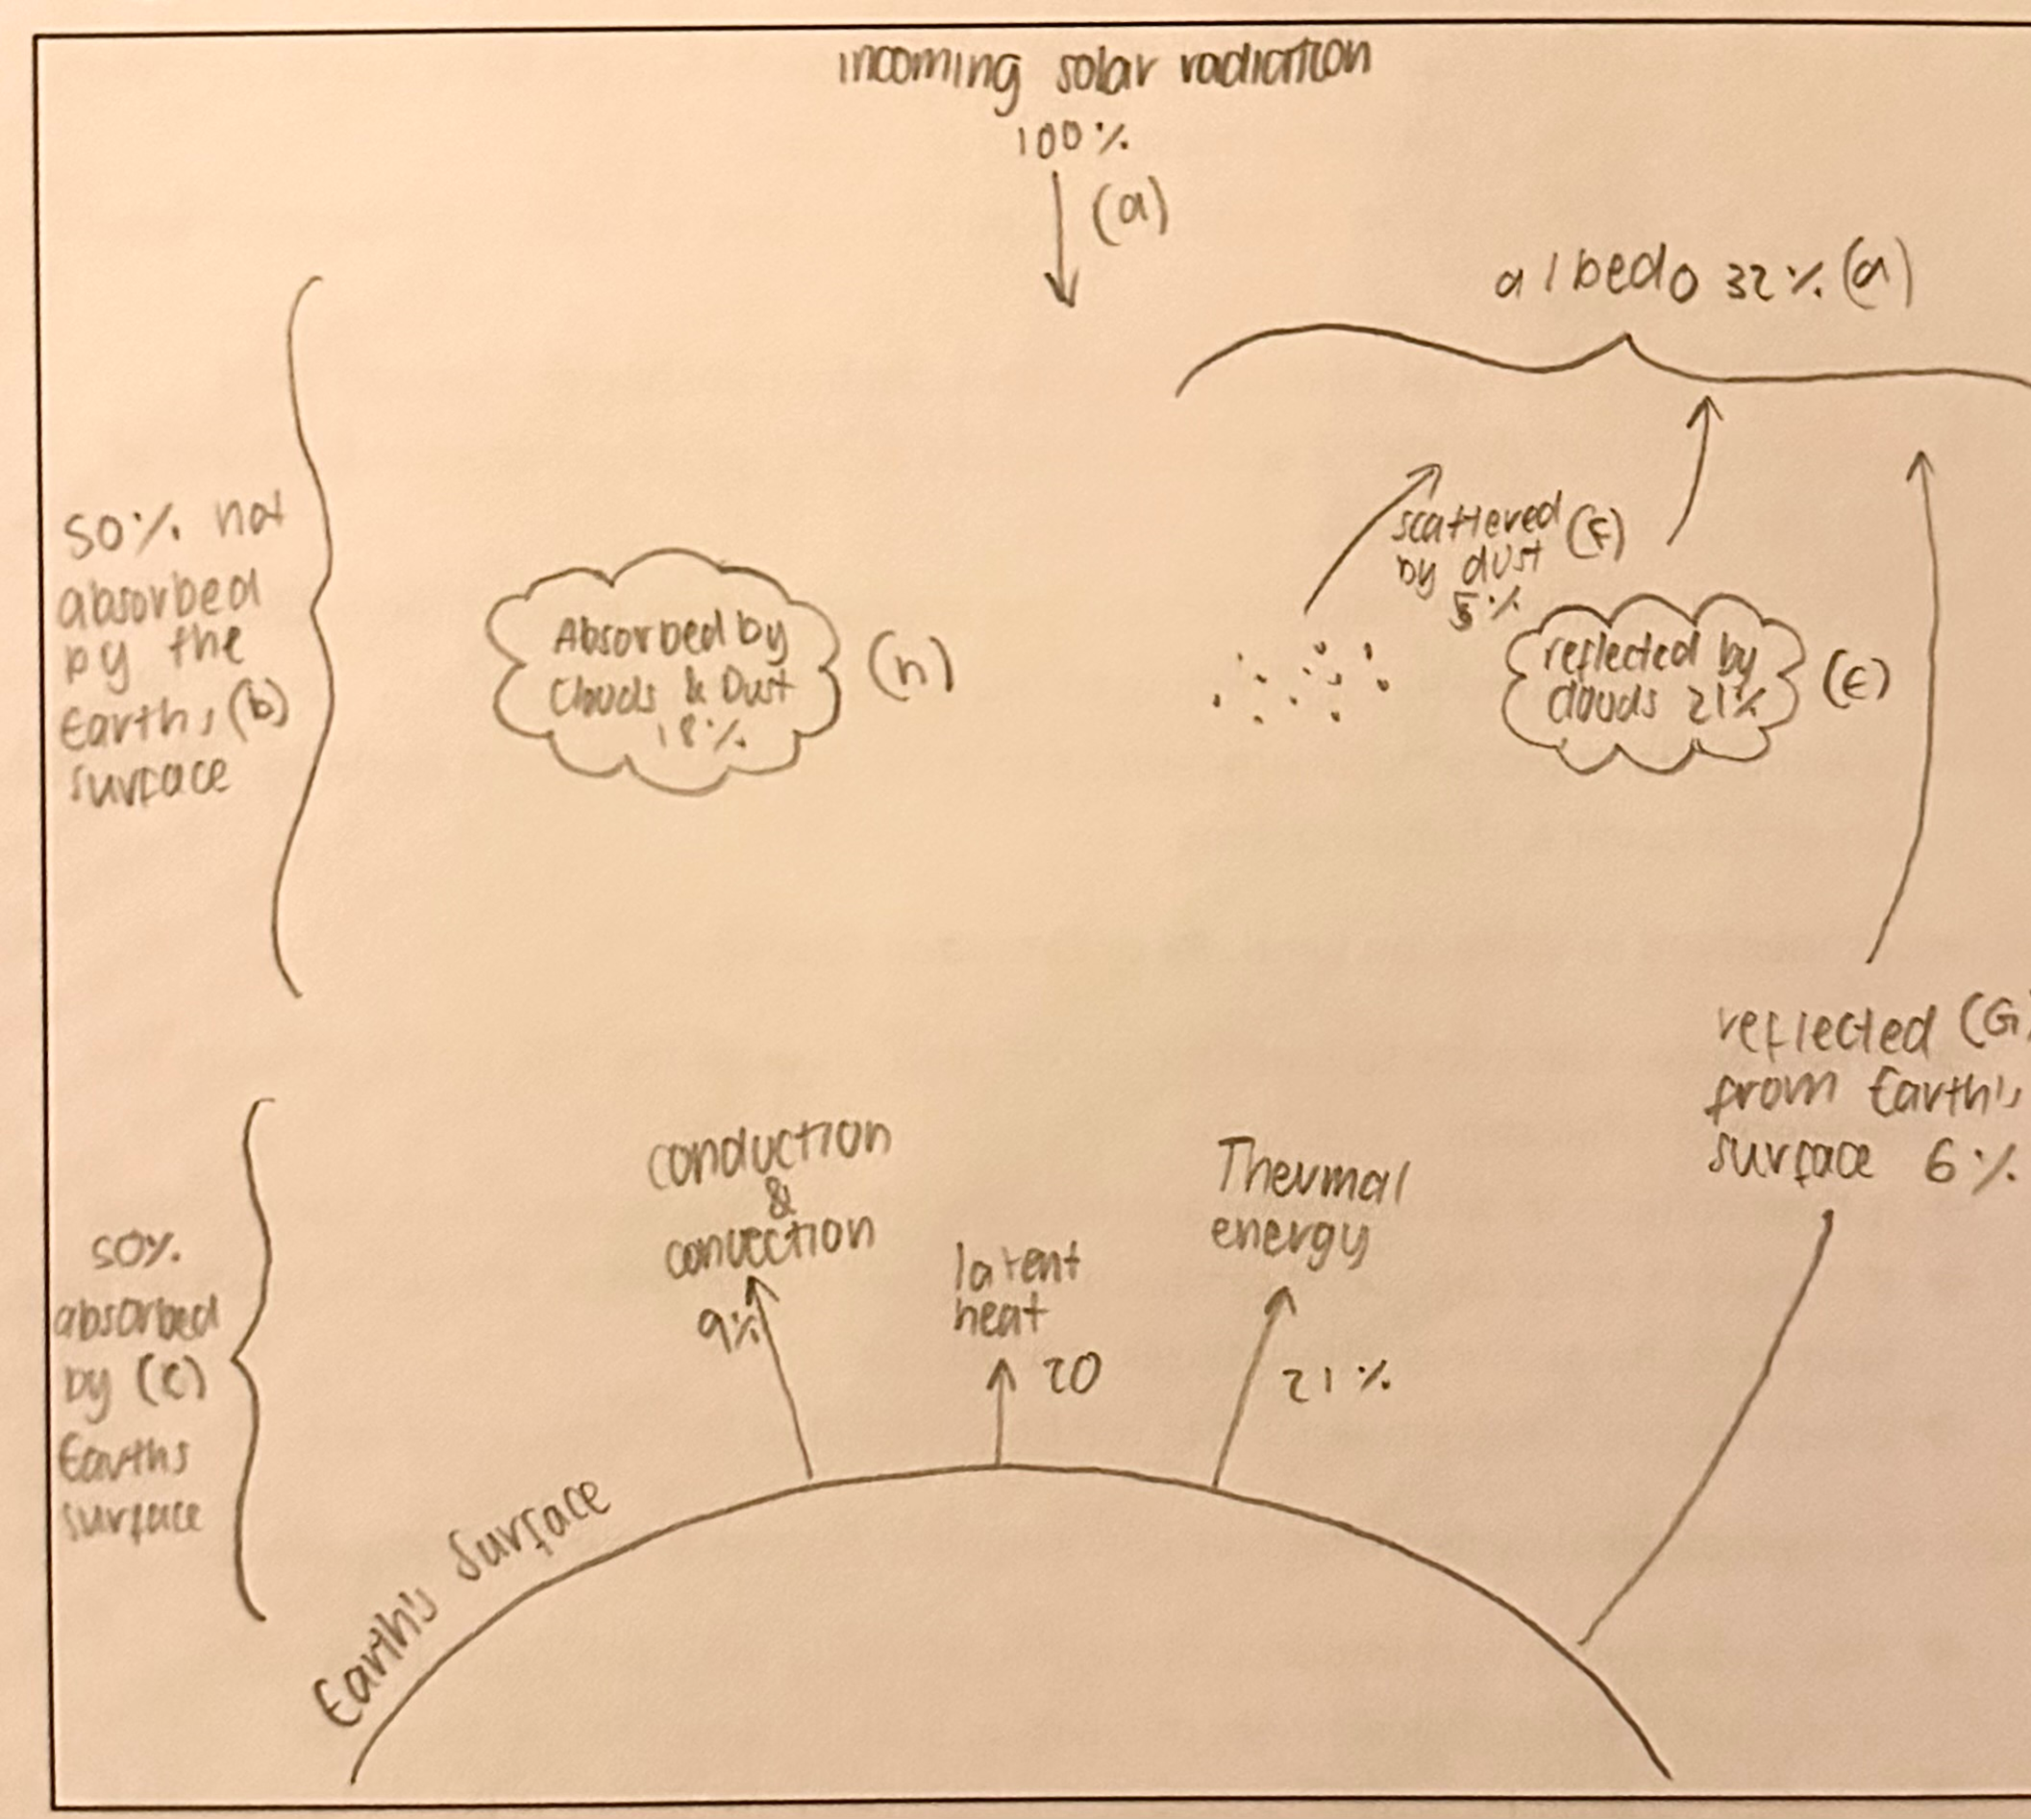 incoming solar radiation
100%
(a)
albedo 32% (a)
50% not
absorbed
by the
Earths (b)
surface
Absorbed by
Clouds & Dust
18%
(h)
scattered (F)
by dust
5%
reflected by
clouds 21%
(E)
reflected (G)
from Earth's
surface 6%
50%
absorbed
by (c)
Earths
surface
conduction
&
convection
9%
latent
heat
20
Thermal
energy
21%
Earth's Surface